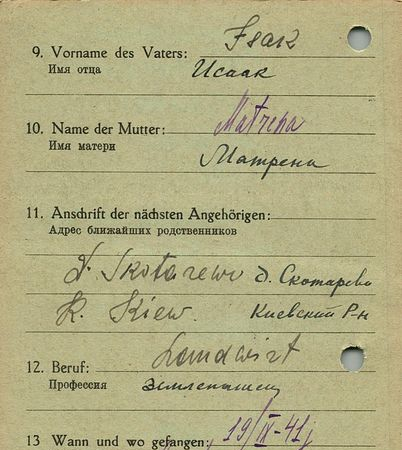 9. Vorname des Vaters: Isak
Имя отца Исаак
10. Name der Mutter: Matrena
Имя матери Матрена
11. Anschrift der nächsten Angehörigen:
Адрес ближайших родственников
D. Skotarewo д. Скотарево
R. Kiew. Киевский Р-н
12. Beruf: Landwirt
Профессия землепашец
13 Wann und wo gefangen: 19/IX-41j